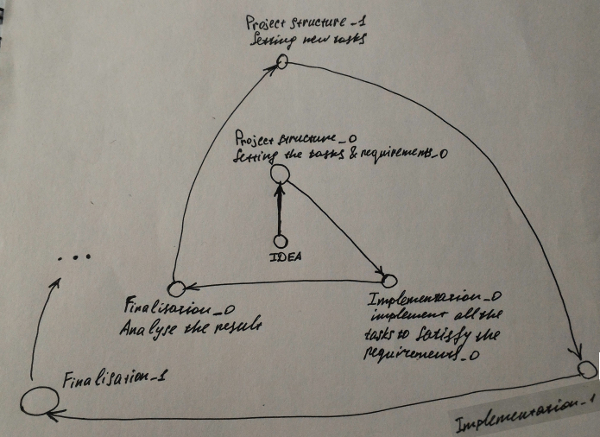 Project structure_1
Setting new tasks
Project structure_0
Setting the tasks & requirements_0
IDEA
Finalisation_0
Analyse the result
Implementation_0
implement all the
tasks to satisfy the
requirements_0
...
Finalisation_1
Implementation_1